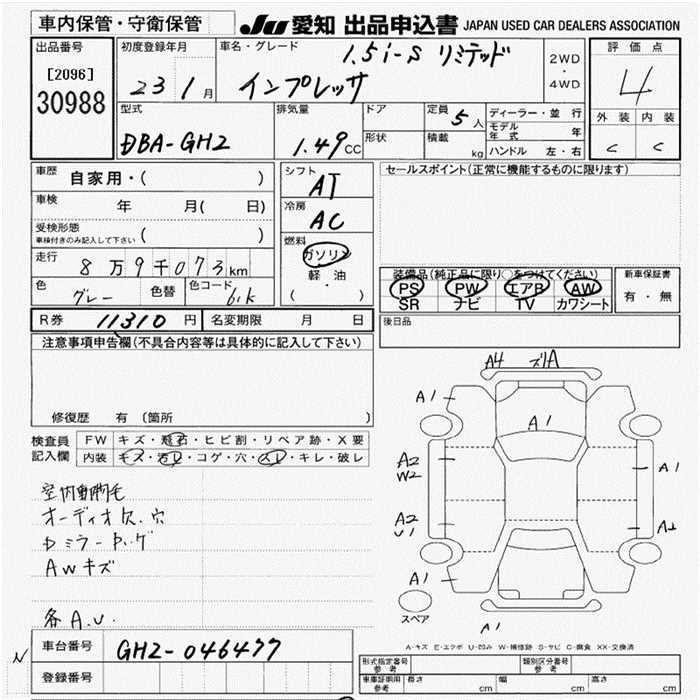 車内保管・守衛保管 JU 愛知 出品申込書 JAPAN USED CAR DEALERS ASSOCIATION
出品番号 初度登録年月 車名・グレード 1.5i-S リミテッド 2WD・4WD 評価点
[2096] 23 1月 インプレッサ 4
30988 型式 排気量 ドア 定員 5人 ディーラー・並行 外装 内装
モデル年式 年
DBA-GH2 1.49CC 形状 積載 kg ハンドル 左・右 C C
車歴 自家用・( ) シフト AT セールスポイント(正常に機能するものに限ります)
車検 年 月( 日) 冷房 AC
受検形態
車検付きのみ記入して下さい ( ) 燃料
走行 8万9千073km ガソリン 装備品(純正品に限り○をつけてください) 新車保証書
軽油 PS PW エアB AW 有・無
色 グレー 色替 色コード 61K ( ) SR ナビ TV カワシート
R券 11310円 名変期限 月 日 後日品
注意事項申告欄(不具合内容等は具体的に記入して下さい)
修復歴 有 (箇所
検査員 FW キズ・飛石・ヒビ割・リペア跡・X要
記入欄 内装 キズ・汚レ・コゲ・穴・スレ・キレ・破レ
A4 ズリA
A1
A1
A2
W2
A1
A2
U1
A1
A1
スペア
A1
オーディオ欠.穴
AWキズ
各A.U.
A-キズ E-エクボ U-凹み W-補修跡 S-サビ C-腐食 XX-交換済
N 車台番号 GH2-046477
登録番号
形式指定番号 参考 類別区分番号 参考
車庫証明用 参考 長さ cm 幅 cm 高さ cm